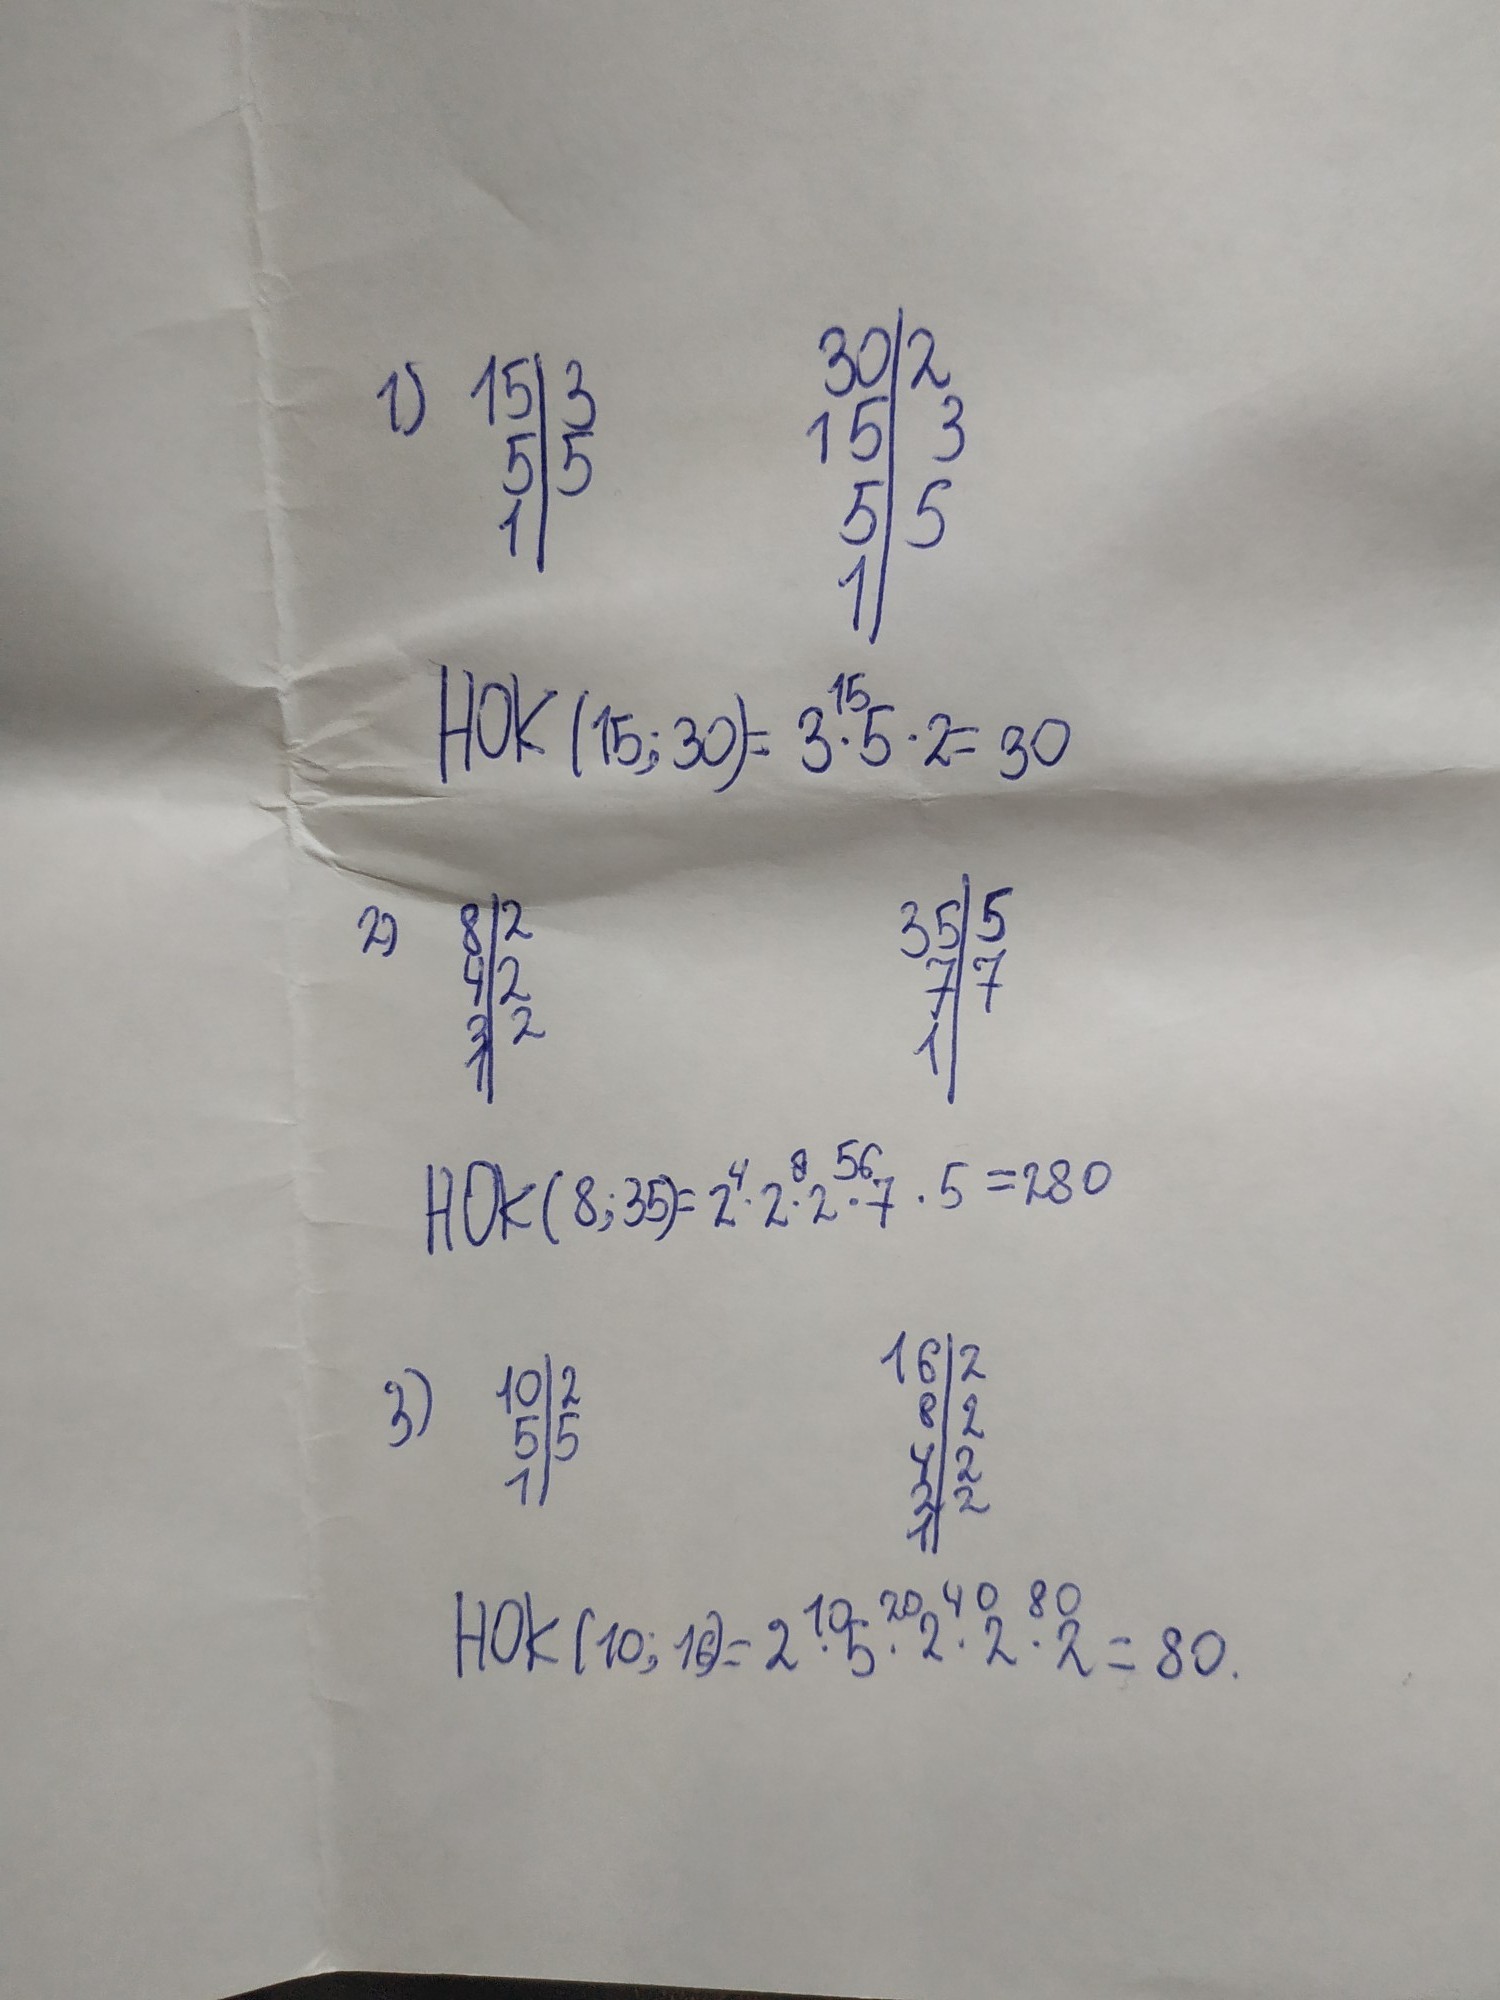 1) 15|3 30|2
5|5 15|3
1| 5|5
1|
НОК (15; 30) = 3 ·¹⁵ 5 · 2 = 30
2) 8|2 35|5
4|2 7|7
2|2 1|
1|
НОК (8; 35) = 2 ·⁴ 2 ·⁸ 2 ·⁵⁶ 7 · 5 = 280
3) 10|2 16|2
5|5 8|2
1| 4|2
2|2
1|
НОК (10; 16) = 2 ·¹⁰ 5 ·²⁰ 2 ·⁴⁰ 2 ·⁸⁰ 2 = 80.